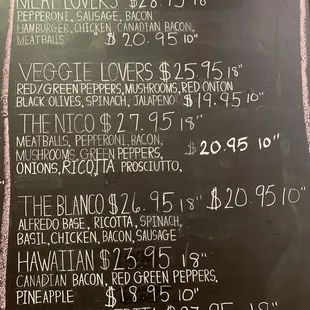 MEAT LOVERS $28.95 18"
PEPPERONI, SAUSAGE, BACON
HAMBURGER, CHICKEN CANADIAN BACON,
MEATBALLS $20.95 10"
VEGGIE LOVERS $25.95 18"
RED/GREEN PEPPERS, MUSHROOMS, RED ONION
BLACK OLIVES, SPINACH, JALAPENO $19.95 10"
THE NICO $27.95 18"
MEATBALLS, PEPPERONI, BACON,
MUSHROOMS, GREEN PEPPERS, $20.95 10"
ONIONS, RICOTTA PROSCIUTTO,
THE BLANCO $26.95 18" $20.95 10"
ALFREDO BASE, RICOTTA, SPINACH,
BASIL, CHICKEN, BACON, SAUSAGE
HAWAIIAN $23.95 18"
CANADIAN BACON, RED GREEN PEPPERS,
PINEAPPLE $18.95 10"